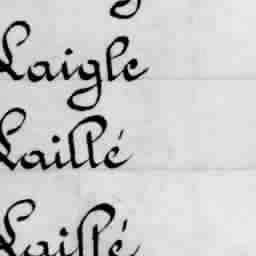 Laigle
Laillé
Laillé